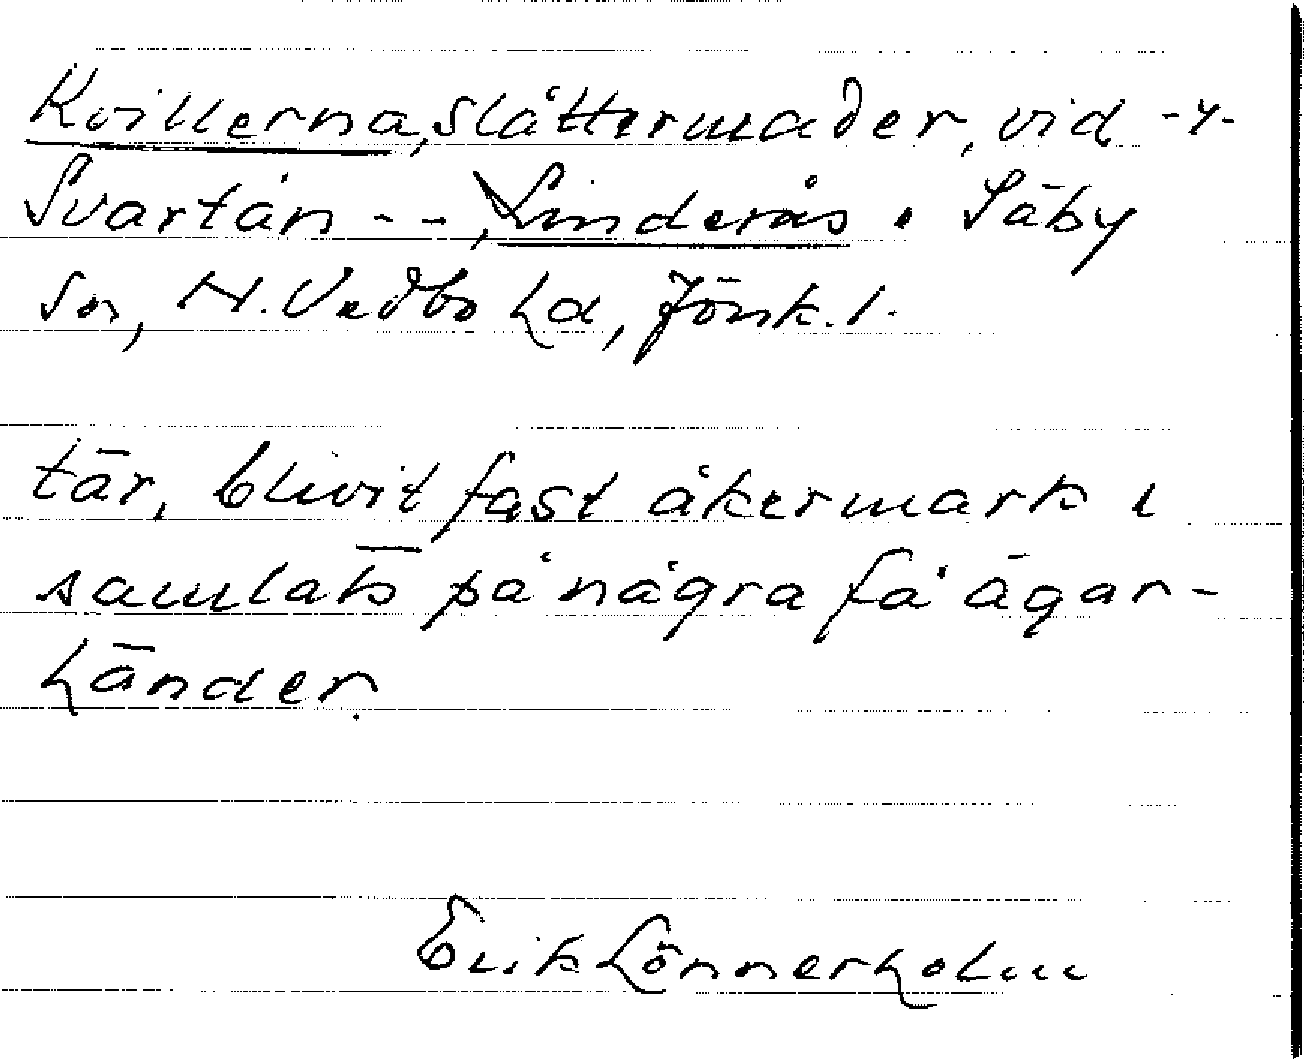 Kvillerna, slåttermader, vid -4-
Svartån - -, Linderås i Säby
sn, N. Vedbo hd, Jönk. l.
tär, blivit fast åkermark i
samlats på några få ägar-
händer.
Erik Lönnerholm